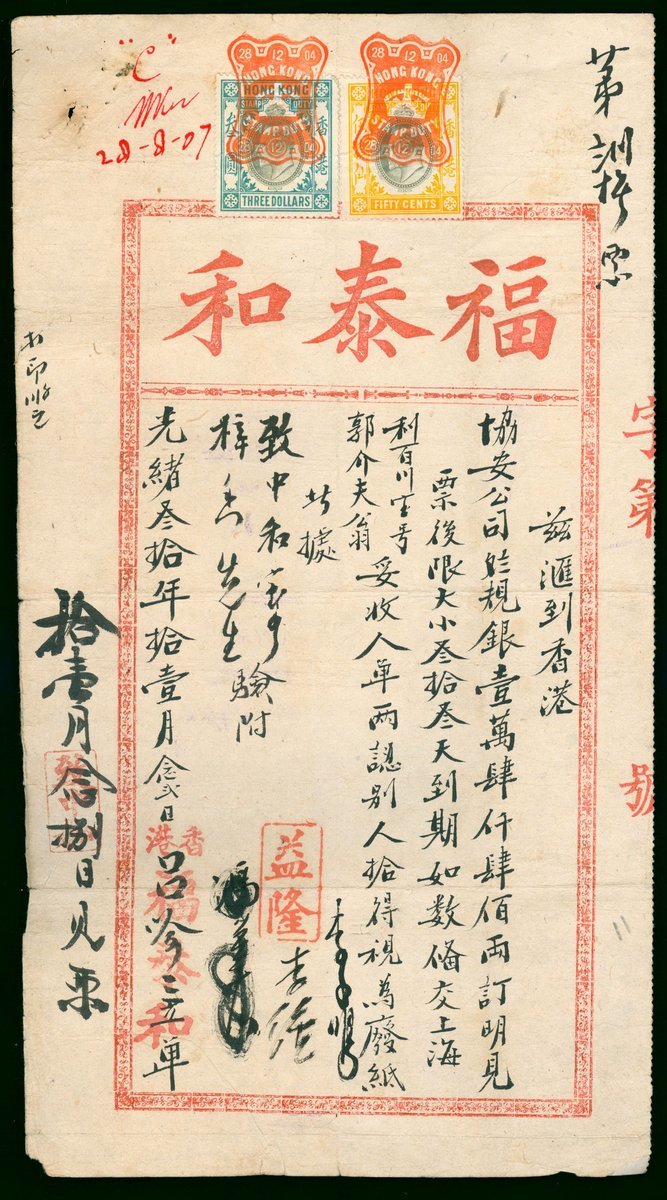 "C"
28-8-07
28 12 04
HONG KONG
STAMP DUTY
28 12 04
HONG KONG
STAMP DUTY
香港
叁圓
THREE DOLLARS
28 12 04
HONG KONG
STAMP DUTY
28 12 04
香港
FIFTY CENTS
福泰和
字第
號
茲滙到香港
協安公司之規銀壹萬肆仟肆佰兩訂明見
票後限大小叁拾叁天到期如數俻交上海
利百川宝号
郭介夫翁
妥收人单両認別人拾得視為廢紙
此據
致中和宝号
梓 先生驗附
益隆
光緒叁拾年拾壹月念弍日
单
香港
福泰和
拾壹月念捌日見票
11